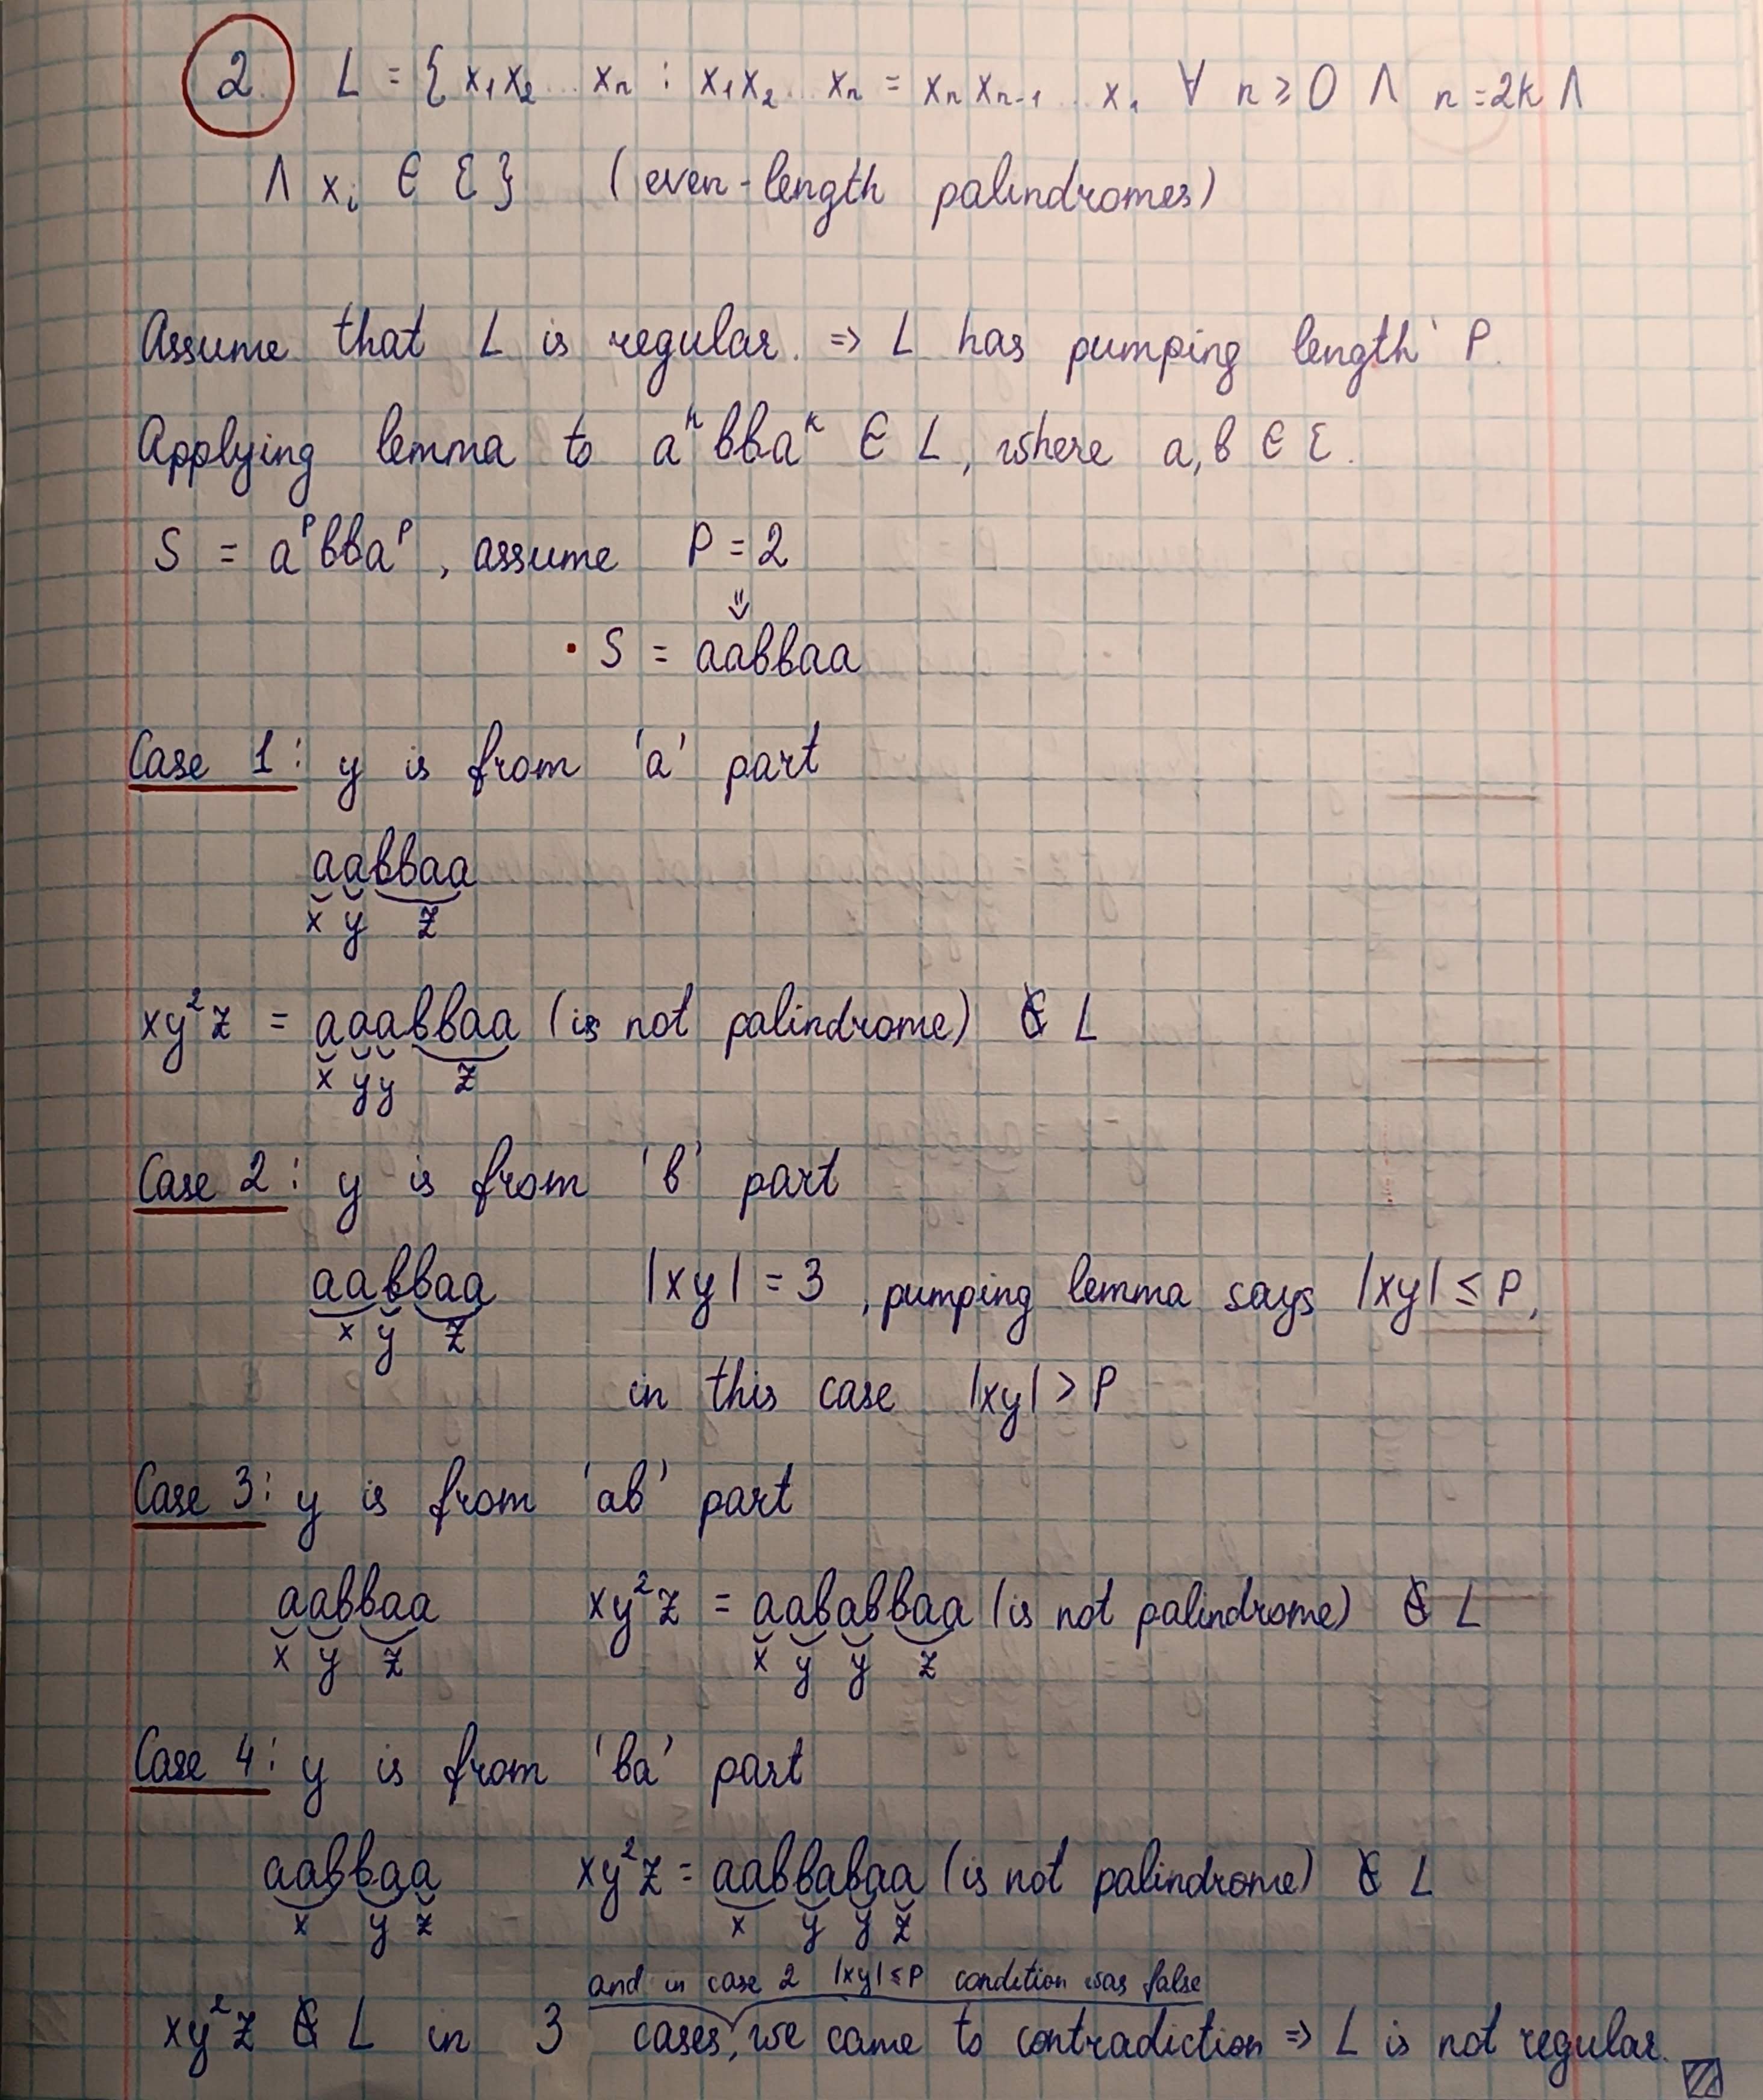 2. L = { x₁x₂...xₙ : x₁x₂...xₙ = xₙxₙ₋₁...x₁ ∀ n ≥ 0 ∧ n = 2k ∧
∧ xᵢ ∈ Σ } (even-length palindromes)
Assume that L is regular. => L has pumping length P.
Applying lemma to aᵏbbaᵏ ∈ L, where a, b ∈ Σ.
S = aᵖbbaᵖ, assume P = 2
⇓
· S = aabbaa
Case 1: y is from 'a' part
aabbaa
x y z
xy²z = aaabbaa (is not palindrome) ∉ L
x y y z
Case 2: y is from 'b' part
aabbaa |xy| = 3, pumping lemma says |xy| ≤ P,
x y z
in this case |xy| > P
Case 3: y is from 'ab' part
aabbaa xy²z = aababbaa (is not palindrome) ∉ L
x y z x y y z
Case 4: y is from 'ba' part
aabbaa xy²z = aabbabaa (is not palindrome) ∉ L
x y z x y y z
and in case 2 |xy| ≤ P condition was false
xy²z ∉ L in 3 cases, we came to contradiction => L is not regular.